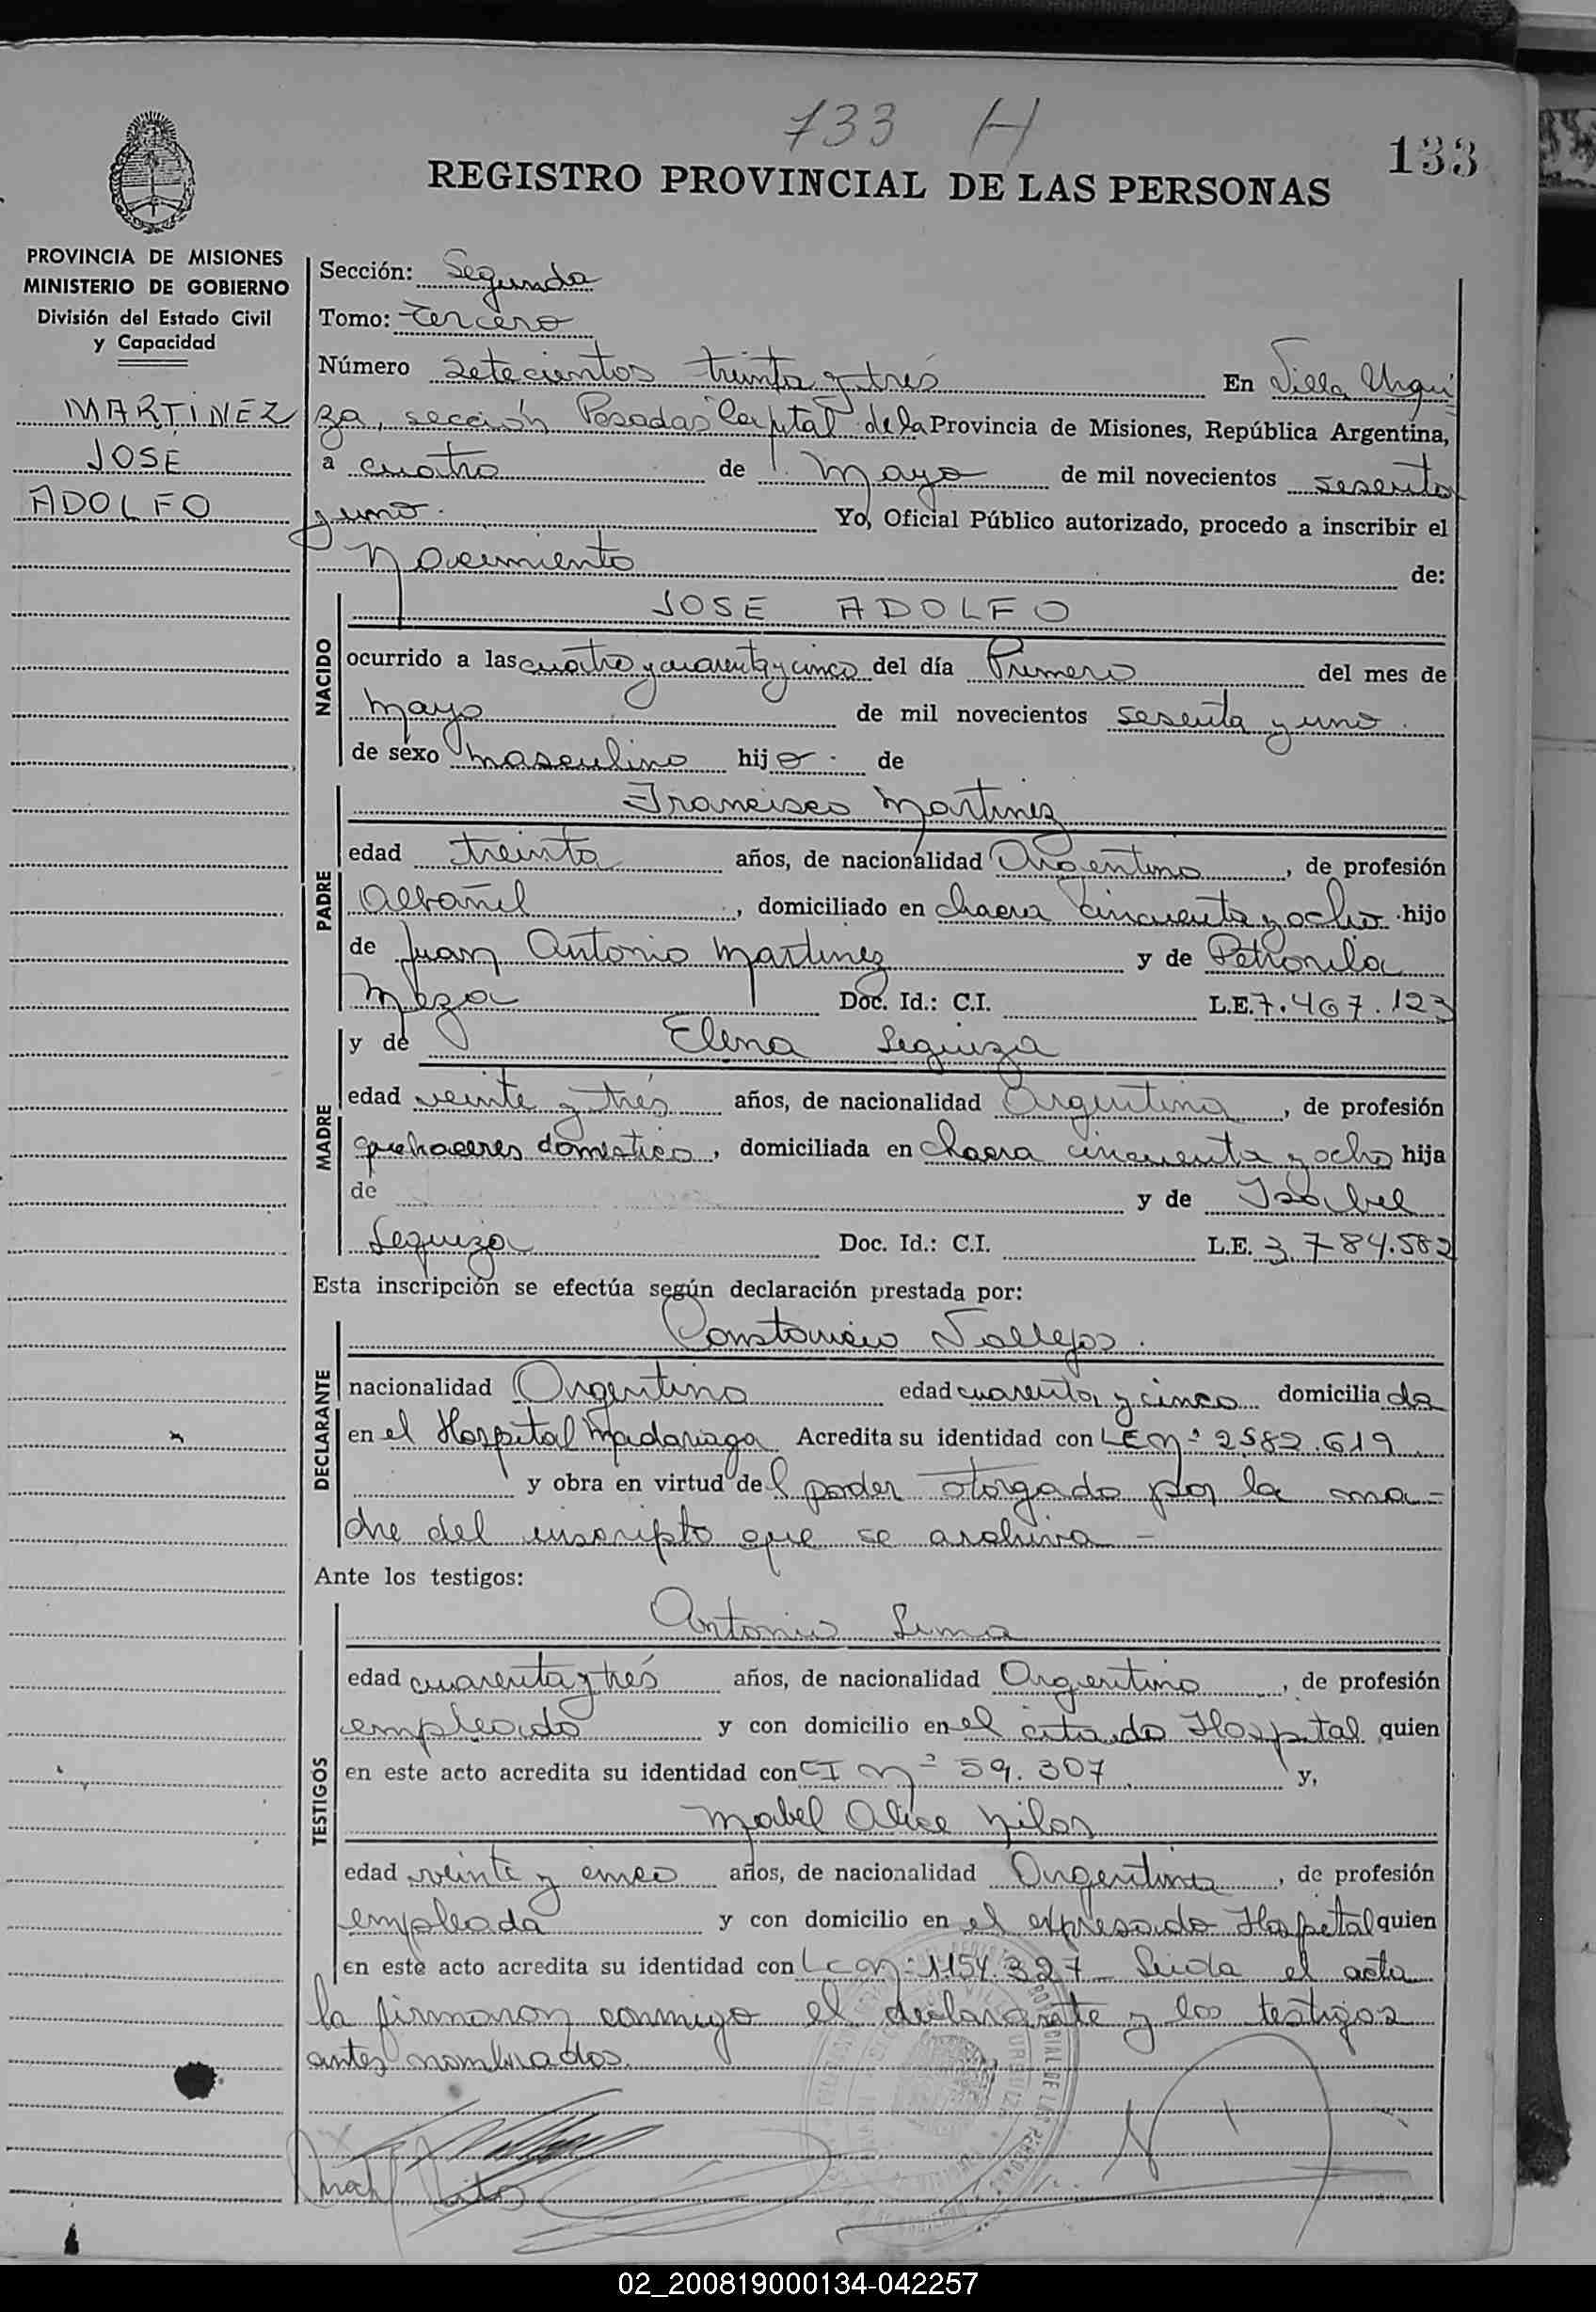 733 H
133
REGISTRO PROVINCIAL DE LAS PERSONAS
PROVINCIA DE MISIONES
MINISTERIO DE GOBIERNO
División del Estado Civil
y Capacidad
MARTINEZ
JOSE
ADOLFO
Sección: Segunda
Tomo: Tercero
Número setecientos treinta y trés En Villa Urqui
za, sección Posadas Capital de la Provincia de Misiones, República Argentina,
a cuatro de Mayo de mil novecientos sesenta
y uno. Yo, Oficial Público autorizado, procedo a inscribir el
Nacimiento de:
NACIDO
JOSE ADOLFO
ocurrido a las cuatro y cuarenta y cinco del día Primero del mes de
Mayo de mil novecientos sesenta y uno.
de sexo masculino hijo de
PADRE
Francisco Martinez
edad treinta años, de nacionalidad Argentino, de profesión
Albañil, domiciliado en chacra cincuenta y ocho hijo
de Juan Antonio Martinez y de Petronila
Meza Doc. Id.: C.I. L.E. 7.467.123
MADRE
y de Elena Seguiza
edad veinte y trés años, de nacionalidad Argentina, de profesión
quehaceres domestico, domiciliada en chacra cincuenta y ocho hija
de y de Isabel
Seguiza Doc. Id.: C.I. L.E. 3.784.582
Esta inscripción se efectúa según declaración prestada por:
DECLARANTE
Vallejos.
nacionalidad Argentino edad cuarenta y cinco domiciliado da
en el Hospital Madariaga Acredita su identidad con LE nº 2582.619
y obra en virtud del poder otorgado por la ma-
dre del inscripto que se archiva -
Ante los testigos:
TESTIGOS
Antonio Lima
edad cuarenta y trés años, de nacionalidad Argentino, de profesión
empleado y con domicilio en el citado Hospital quien
en este acto acredita su identidad con CI nº 59.307 y,
Mabel Alice
edad veinte y cinco años, de nacionalidad Argentina, de profesión
empleada y con domicilio en el expresado Hospital quien
en este acto acredita su identidad con LC nº 1154.327 Leida el acta
la firmaron conmigo el declarante y los testigos
antes nombrados.
02_200819000134-042257